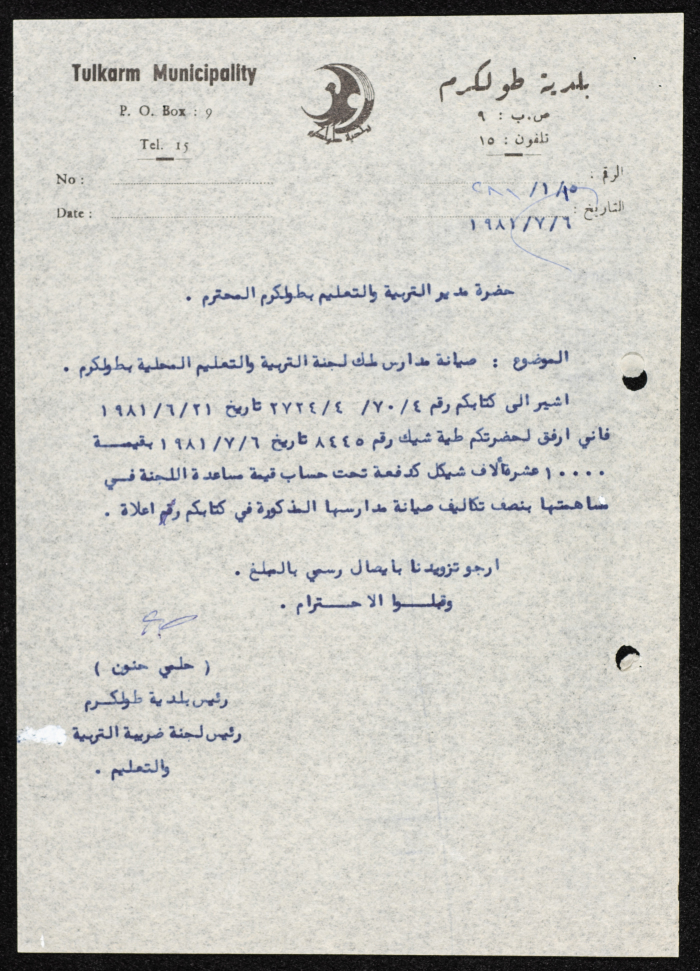 Tulkarm Municipality
P. O. Box : 9
Tel. 15
No :
Date :
بلدية طولكرم
ص.ب : ٩
تلفون : ١٥
الرقم :
التاريخ : ١٩٨١/٧/٦
حضرة مدير التربية والتعليم بطولكرم المحترم .
الموضوع : صيانة مدارس ملك لجنة التربية والتعليم المحلية بطولكرم .
اشير الى كتابكم رقم ٧٠/٤/ ٢٧٢٤/٤ تاريخ ١٩٨١/٦/٢١
فاني ارفق لحضرتكم طية شيك رقم ٨٤٤٥ تاريخ ١٩٨١/٧/٦ بقيمـــة
١٠٠٠٠ عشرةألاف شيكل كدفعة تحت حساب قيمة مساعدة اللجنة فــي
مساهمتها بنصف تكاليف صيانة مدارسها المذكورة في كتابكم رقم اعلاة .
ارجو تزويدنا بايصال رسمي بالمبلغ .
وقبلـــوا الاحـــترام .
( حلمي حنون )
رئيس بلدية طولكـرم
رئيس لجنة ضريبة التربية
والتعليم .